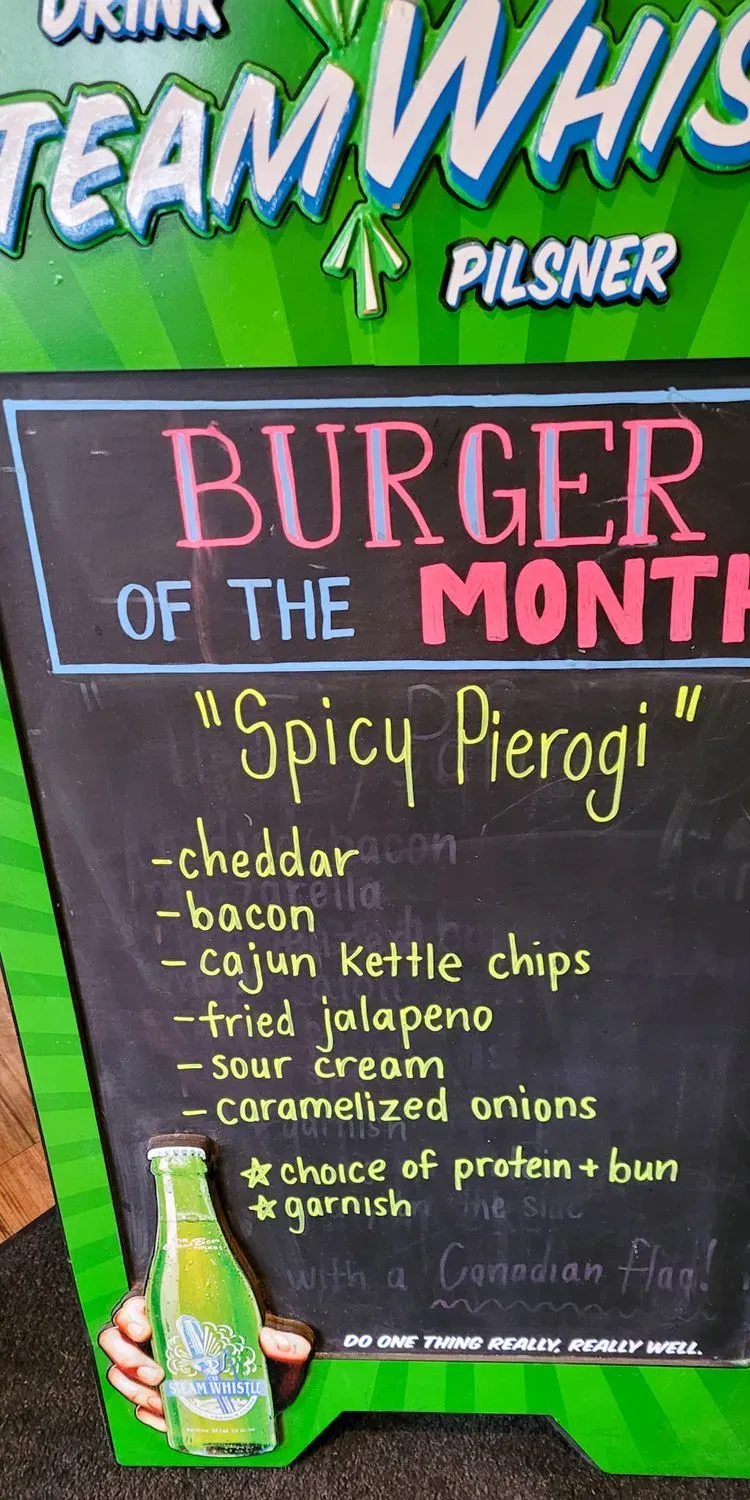 DRINK
TEAMWHIS
PILSNER
BURGER
OF THE MONTH
"Spicy Pierogi"
-cheddar
-bacon
- cajun kettle chips
-fried jalapeno
- sour cream
- caramelized onions
☆ choice of protein + bun
☆ garnish
with a Canadian flag!
DO ONE THING REALLY, REALLY WELL.
STEAM WHISTLE